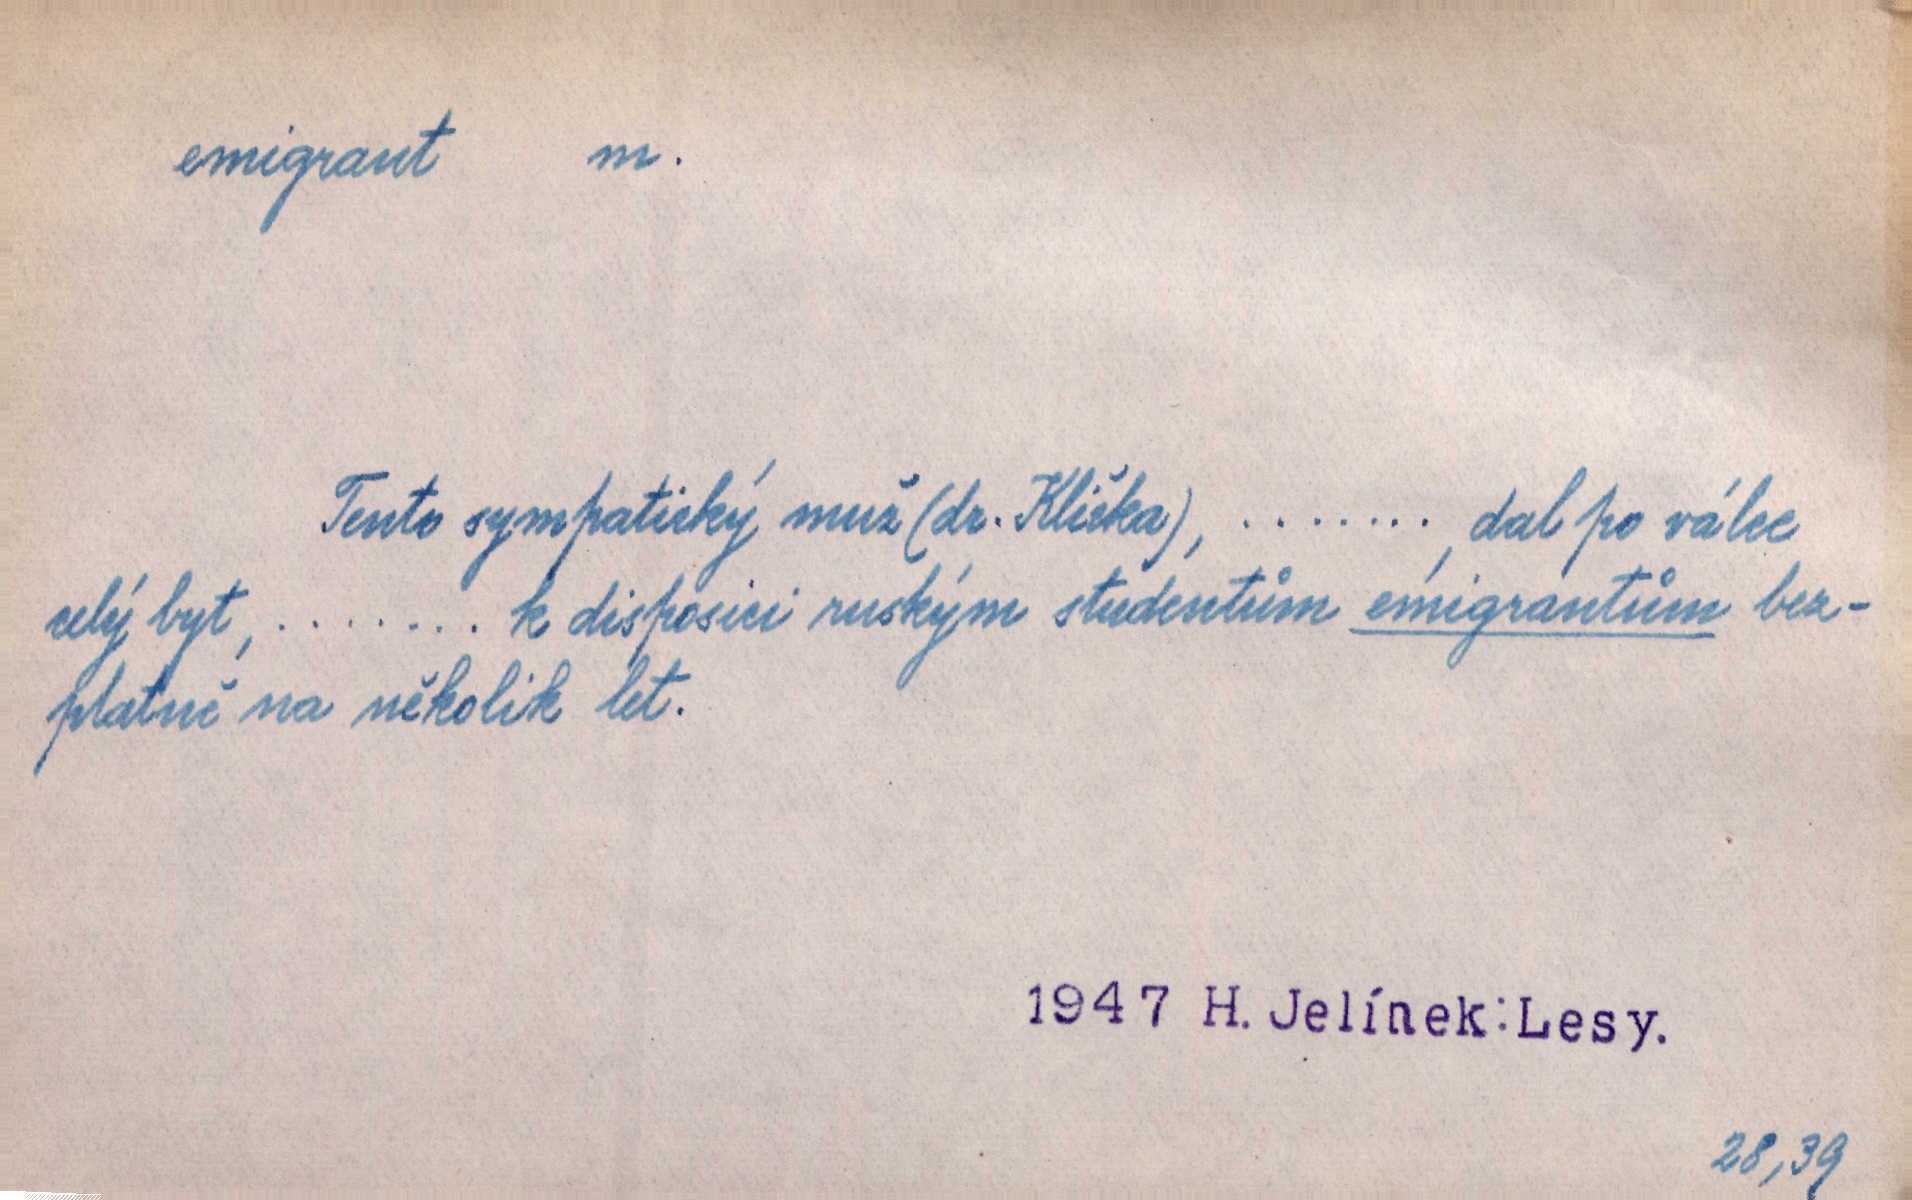 emigrant m.
Tento sympatický muž (dr. Klička), ........, dal po válce
celý byt, ........ k disposici ruským studentům emigrantům bez-
platně na několik let.
1947 H. Jelínek: Lesy.
28,39